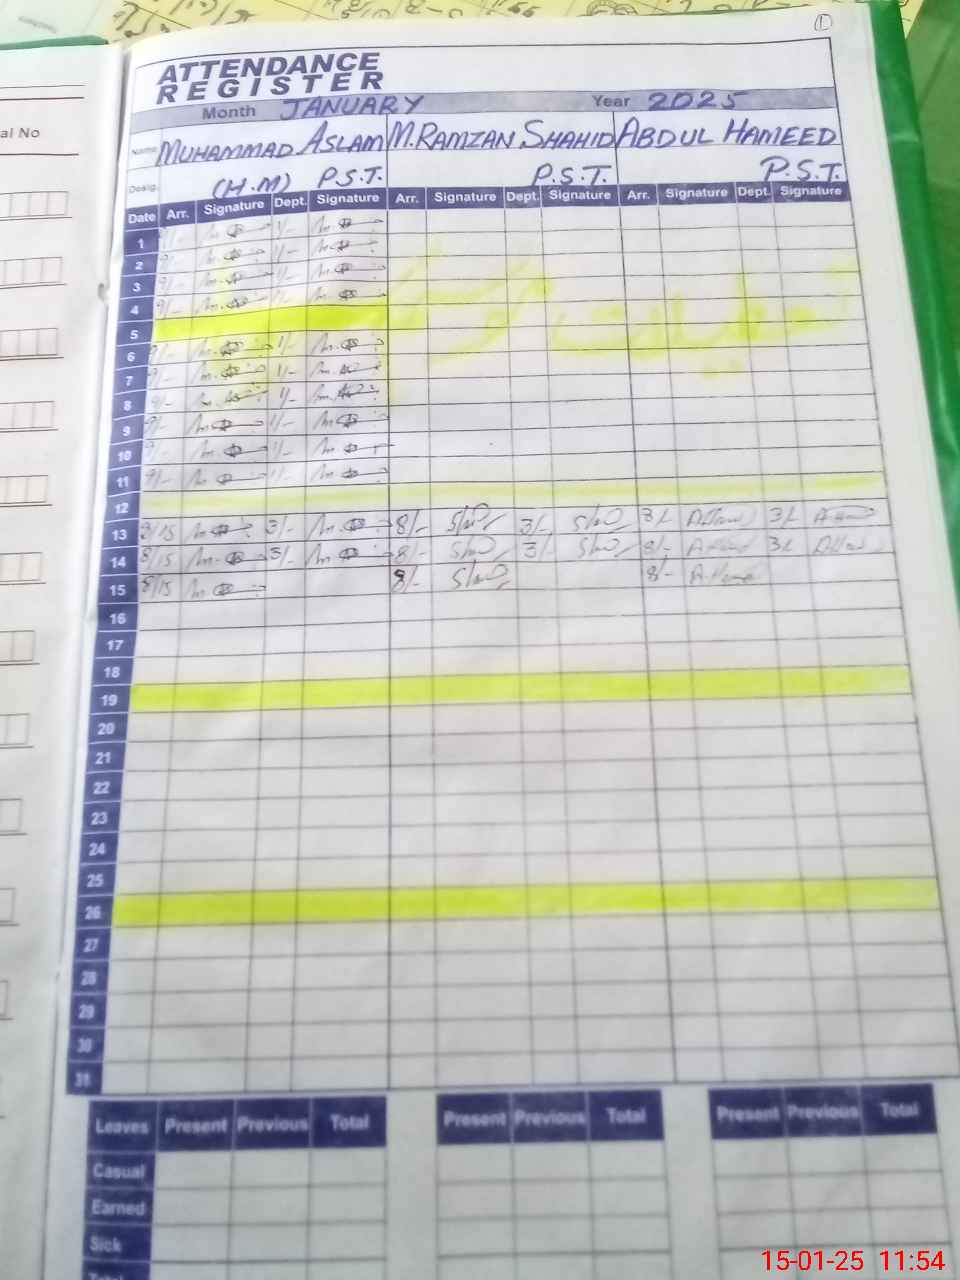 al No
1
ATTENDANCE
REGISTER
Month JANUARY Year 2025
Name MUHAMMAD ASLAM M. RAMZAN SHAHID ABDUL HAMEED
Desig. (H.M) P.S.T. P.S.T. P.S.T.
Date Arr. Signature Dept. Signature Arr. Signature Dept. Signature Arr. Signature Dept. Signature
1 9/- 1/-
2 9/- 1/-
3 9/- 1/-
4 9/-
تعطیلات
5
6 9/- 1/-
7 9/- 1/-
8 9/- 1/-
9 9/- 1/-
10 9/- 1/-
11 9/- 1/-
12
13 8/15 3/- 8/- 3/- 8/- 3/-
14 8/15 3/- 8/- 3/- 8/- 3/-
15 8/15 8/- 8/-
16
17
18
19
20
21
22
23
24
25
26
27
28
29
30
31
Leaves Present Previous Total Present Previous Total Present Previous Total
Casual
Earned
Sick
Total
15-01-25 11:54